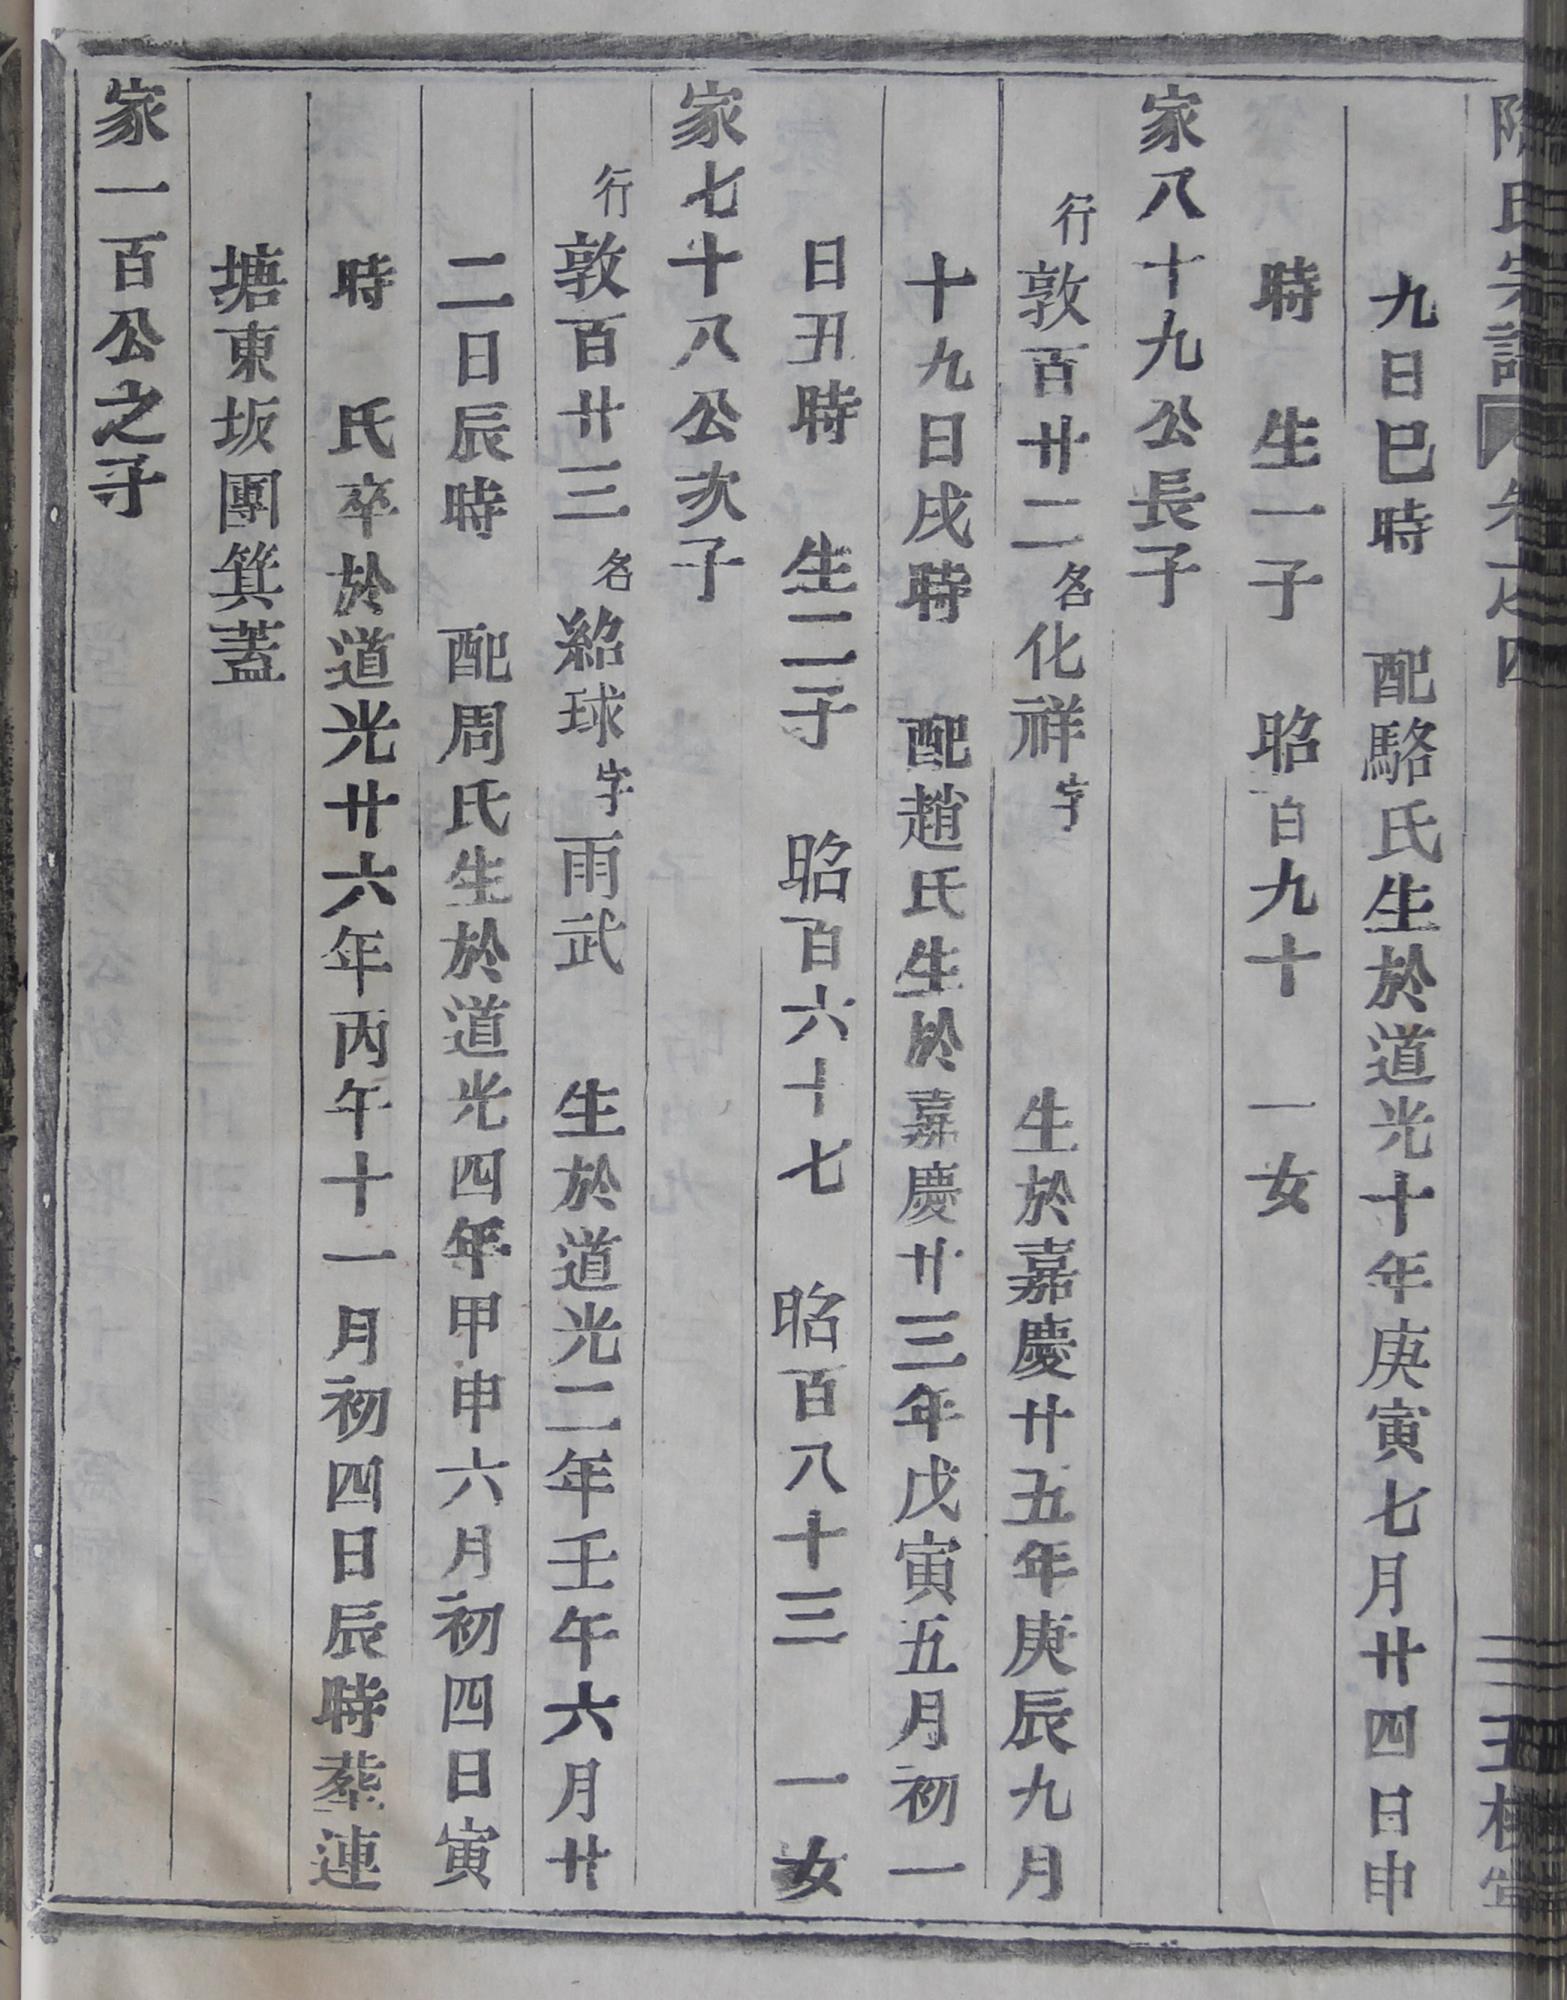 氏宗譜 卷之四 三
九日巳時 配駱氏生於道光十年庚寅七月廿四日申
時 生一子 昭百九十 一女
家八十九公長子
行敦百廿二名化祥字 生於嘉慶廿五年庚辰九月
十九日戌時 配趙氏生於嘉慶廿三年戊寅五月初一
日丑時 生二子 昭百六十七 昭百八十三 一女
家七十八公次子
行敦百廿三名紹球字雨武 生於道光二年壬午六月廿
二日辰時 配周氏生於道光四年甲申六月初四日寅
時 氏卒於道光廿六年丙午十一月初四日辰時葬蓮
塘東坂團箕蓋
家一百公之子